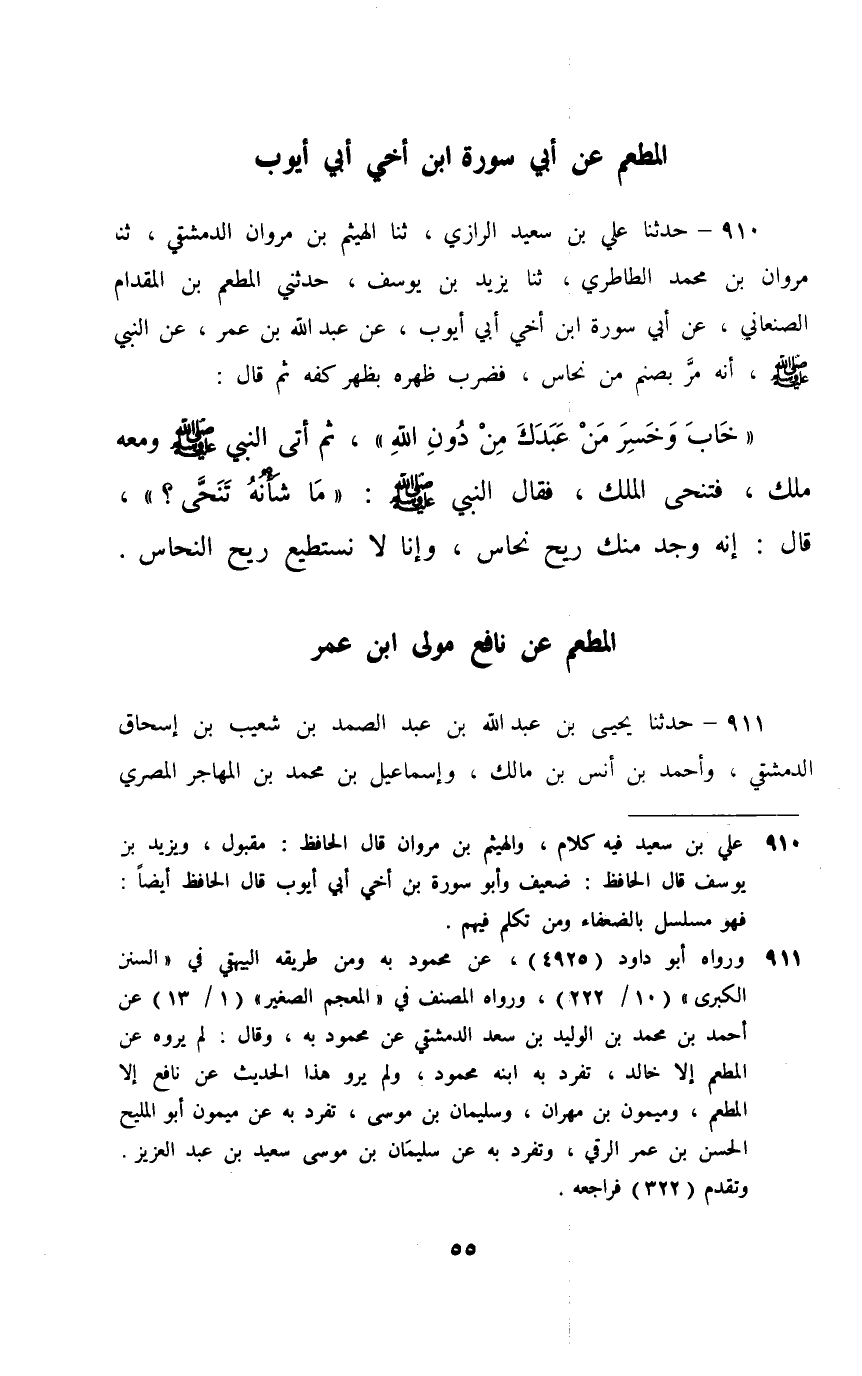 المطعم عن أبي سورة ابن أخي أبي أيوب
٩١٠ – حدثنا علي بن سعيد الرازي ، ثنا الهيثم بن مروان الدمشقي ، ثنا
مروان بن محمد الطاطري ، ثنا يزيد بن يوسف ، حدثني المطعم بن المقدام
الصنعاني ، عن أبي سورة ابن أخي أبي أيوب ، عن عبد الله بن عمر ، عن النبي
ﷺ ، أنه مرَّ بصنم من نحاس ، فضرب ظهره بظهر كفه ثم قال :
« خَابَ وَخَسِرَ مَنْ عَبَدَكَ مِنْ دُونِ اللهِ » ، ثم أتى النبي ﷺ ومعه
ملك ، فتنحى الملك ، فقال النبي ﷺ : « مَا شَأْنُهُ تَنَحَّى ؟ » ،
قال : إنه وجد منك ريح نحاس ، وإنا لا نستطيع ريح النحاس .
المطعم عن نافع مولى ابن عمر
٩١١ – حدثنا يحيى بن عبد الله بن عبد الصمد بن شعيب بن إسحاق
الدمشقي ، وأحمد بن أنس بن مالك ، وإسماعيل بن محمد بن المهاجر المصري
٩١٠ علي بن سعيد فيه كلام ، والهيثم بن مروان قال الحافظ : مقبول ، ويزيد بن
يوسف قال الحافظ : ضعيف وأبو سورة بن أخي أبي أيوب قال الحافظ أيضاً :
فهو مسلسل بالضعفاء ومن تكلم فيهم .
٩١١ ورواه أبو داود ( ٤٩٢٥ ) ، عن محمود به ومن طريقه البيهقي في « السنن
الكبرى » ( ١٠ / ٢٢٢ ) ، ورواه المصنف في « المعجم الصغير » ( ١ / ١٣ ) عن
أحمد بن محمد بن الوليد بن سعد الدمشقي عن محمود به ، وقال : لم يروه عن
المطعم إلا خالد ، تفرد به ابنه محمود ، ولم يرو هذا الحديث عن نافع إلا
المطعم ، وميمون بن مهران ، وسليمان بن موسى ، تفرد به عن ميمون أبو المليح
الحسن بن عمر الرقي ، وتفرد به عن سليمَان بن موسى سعيد بن عبد العزيز .
وتقدم ( ٣٢٢ ) فراجعه .
٥٥